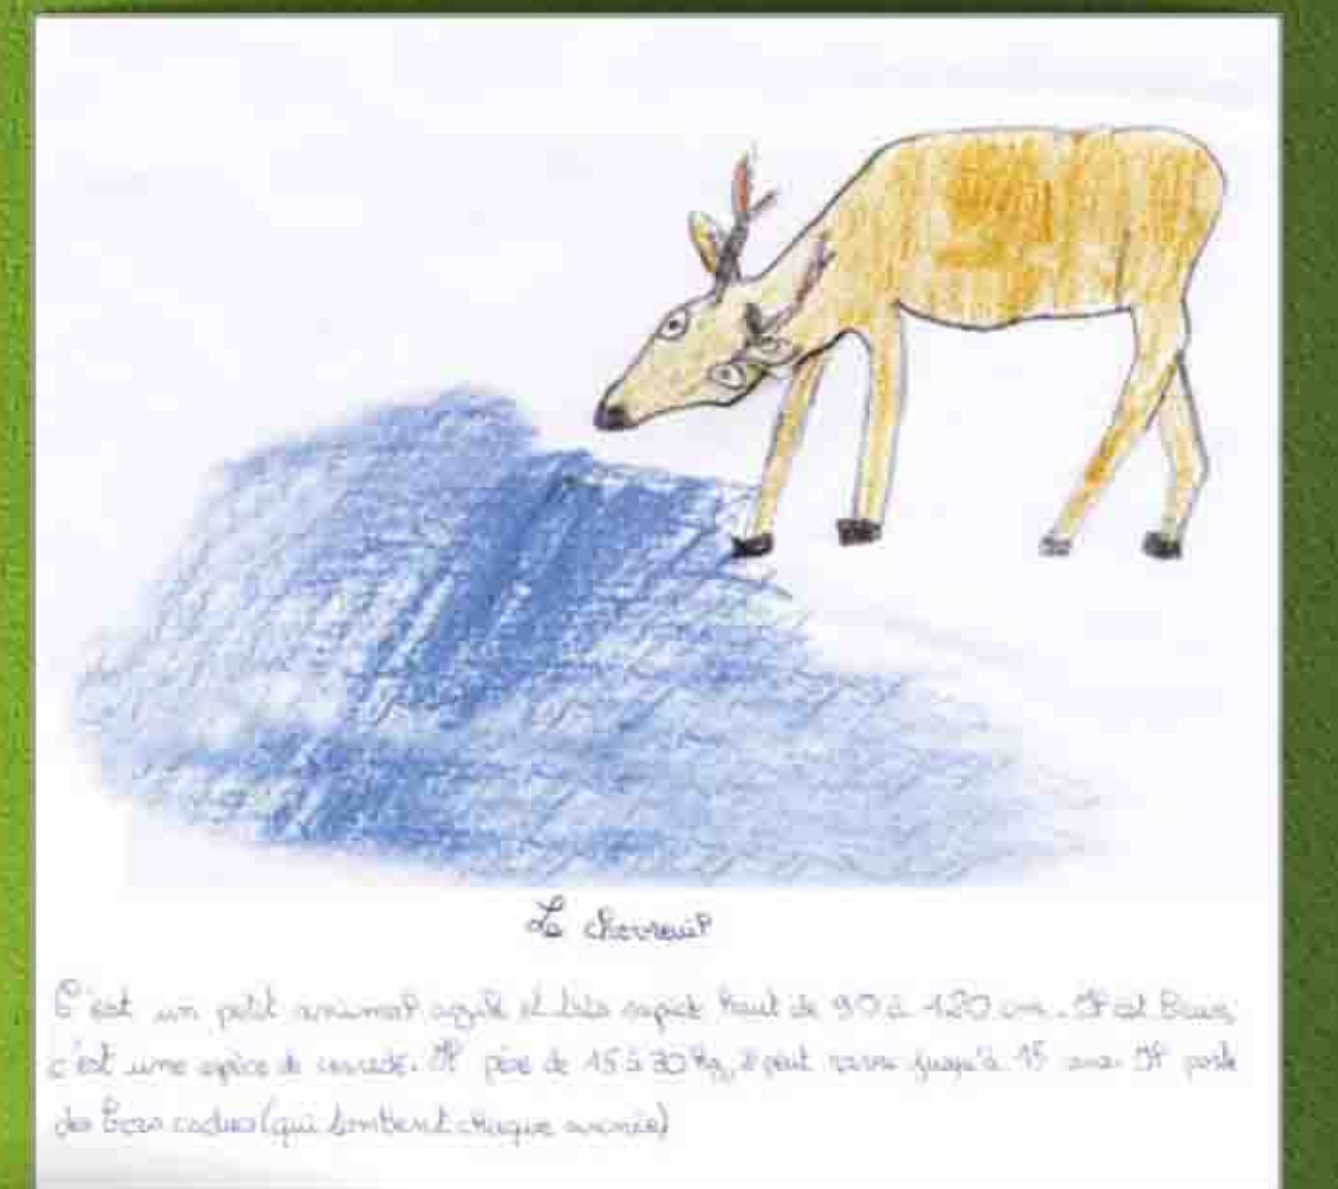 Le chevreuil
C'est un petit animal agile et très rapide haut de 90 à 120 cm. Il est
c'est une espèce de cervidé. Il pèse de 15 à 30 kg, il peut vivre jusqu'à 15 ans. Il porte
des bois caducs (qui tombent chaque année)